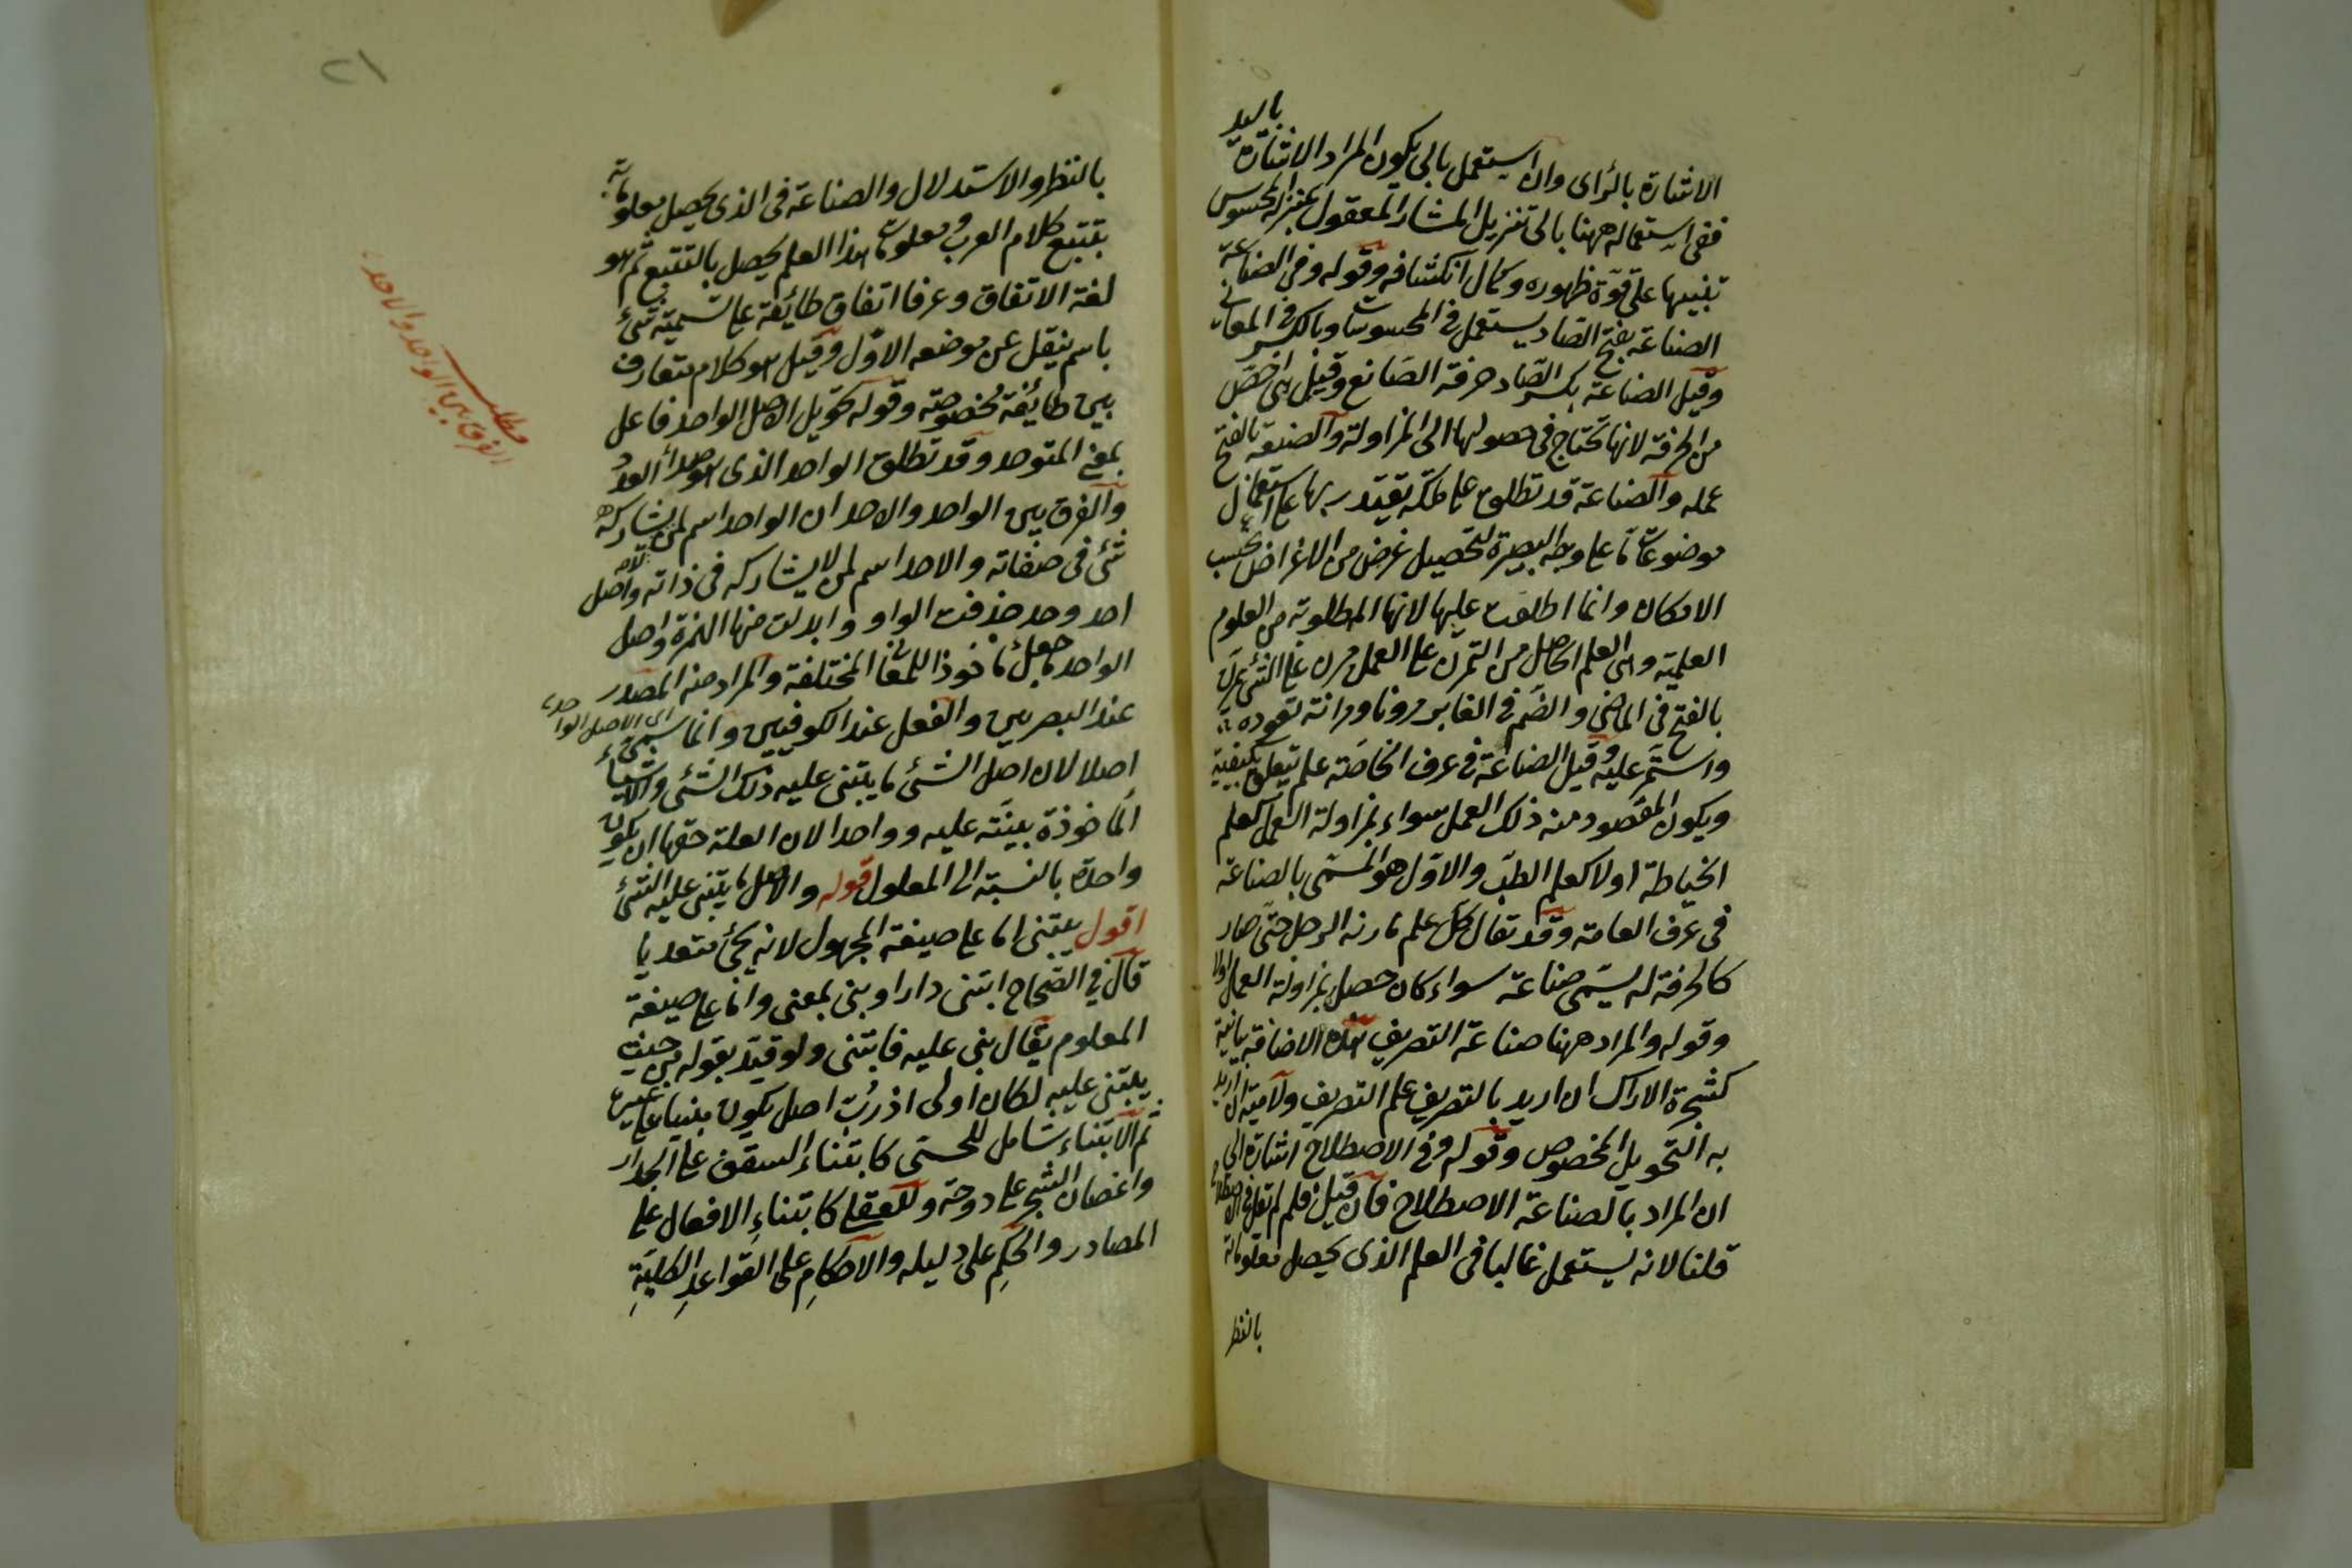 الاشارة بالرأى وان استعمل بالى يكون المراد الاشارة باليد
ففى استعماله ههنا بالى تنزيل المشار المعقول بمنزلة المحسوس
تنبيها على قوة ظهوره وكمال انكشافه وقوله وفى الصناعة
الصناعة بفتح الصاد يستعمل فى المحسوسات وبالكسر فى المعانى
وقيل الصناعة بكسر الصاد حرفة الصانع وقيل هى اخص
من الحرفة لانها تحتاج فى حصولها الى المزاولة والصنعة بالفتح
عمله والصناعة قد تطلق على ملكة يقتدر بها على استعمال
موضوعات ما على وجه البصيرة لتحصيل غرض من الاغراض بحسب
الامكان وانما اطلقت عليها لانها المطلوبة من العلوم
العلمية وهى العلم الحاصل من التمرن على العمل مرن على الشئ يمرن
بالفتح فى الماضى والضم فى الغابر مرونا ومرانة تعوده
واستمر عليه وقيل الصناعة فى عرف الخاصة علم يتعلق بكيفية
ويكون المقصود منه ذلك العمل سواء بمزاولة العمل كعلم
الخياطة اولا كعلم الطب والاول هو المسمى بالصناعة
فى عرف العامة وقد تقال كل علم مارنه الرجل حتى صار
كالحرفة له يسمى صناعة سواء كان حصل بمزاولة العمل اولا
وقوله والمراد ههنا صناعة التصريف هذه الاضافة بيانية
كشجرة الاراك ان اريد بالتصريف علم التصريف ولامية ان اريد
به التحويل المخصوص وقوله وفى الاصطلاح اشارة الى
ان المراد بالصناعة الاصطلاح فان قيل فلم لم تقل فى الاصطلاح
قلنا لانه يستعمل غالبا فى العلم الذى يحصل معلوماته
بالنظر
٢١
بالنظر والاستدلال والصناعة فى الذى يحصل معلوماته
بتتبع كلام العرب ومعلومات هذا العلم يحصل بالتتبع ثم هو
لغة الاتفاق وعرفا اتفاق طائفة على تسمية شئ
باسم ينقل عن موضعه الاول وقيل هو كلام متعارف
بين طائفة مخصوصة وقوله تحويل الاصل الواحد فاعل
بمعنى المتوحد وقد تطلق الواحد الذى هو مبدأ العدد
والفرق بين الواحد والاحد ان الواحد اسم لمن يشاركه
شئ فى صفاته والاحد اسم لمن لا يشاركه فى ذاته واصل
احد وحد حذفت الواو وابدلت منها الهمزة واصل
الواحد ما جعل مأخوذا للمعانى المختلفة والمراد منه المصدر
عند البصريين والفعل عند الكوفيين وانما سمى اى الاصل الواحد
اصلا لان اصل الشئ ما يبتنى عليه ذلك الشئ والاشياء
المأخوذة مبينة عليه وواحدا لان العلة حقها ان يكون
واحدة بالنسبة الى المعلول قوله والاصل ما يبتنى عليه الشئ
اقول يبتنى اما على صيغة المجهول لانه يجئ متعديا
قال فى الصحاح ابتنى دارا وبنى بمعنى واما على صيغة
المعلوم يقال بنى عليه فابتنى ولو قيد بقوله من حيث
يبتنى عليه لكان اولى اذ رب اصل يكون مبنيا على غيره
ثم الابتناء شامل للحسى كابتناء السقف على الجدار
واغصان الشجر على دوحة وللعقلى كابتناء الافعال على
المصادر والحكم على دليله والاحكام على القواعد الكلية
مطلب
الفرق بين الواحد والاحد